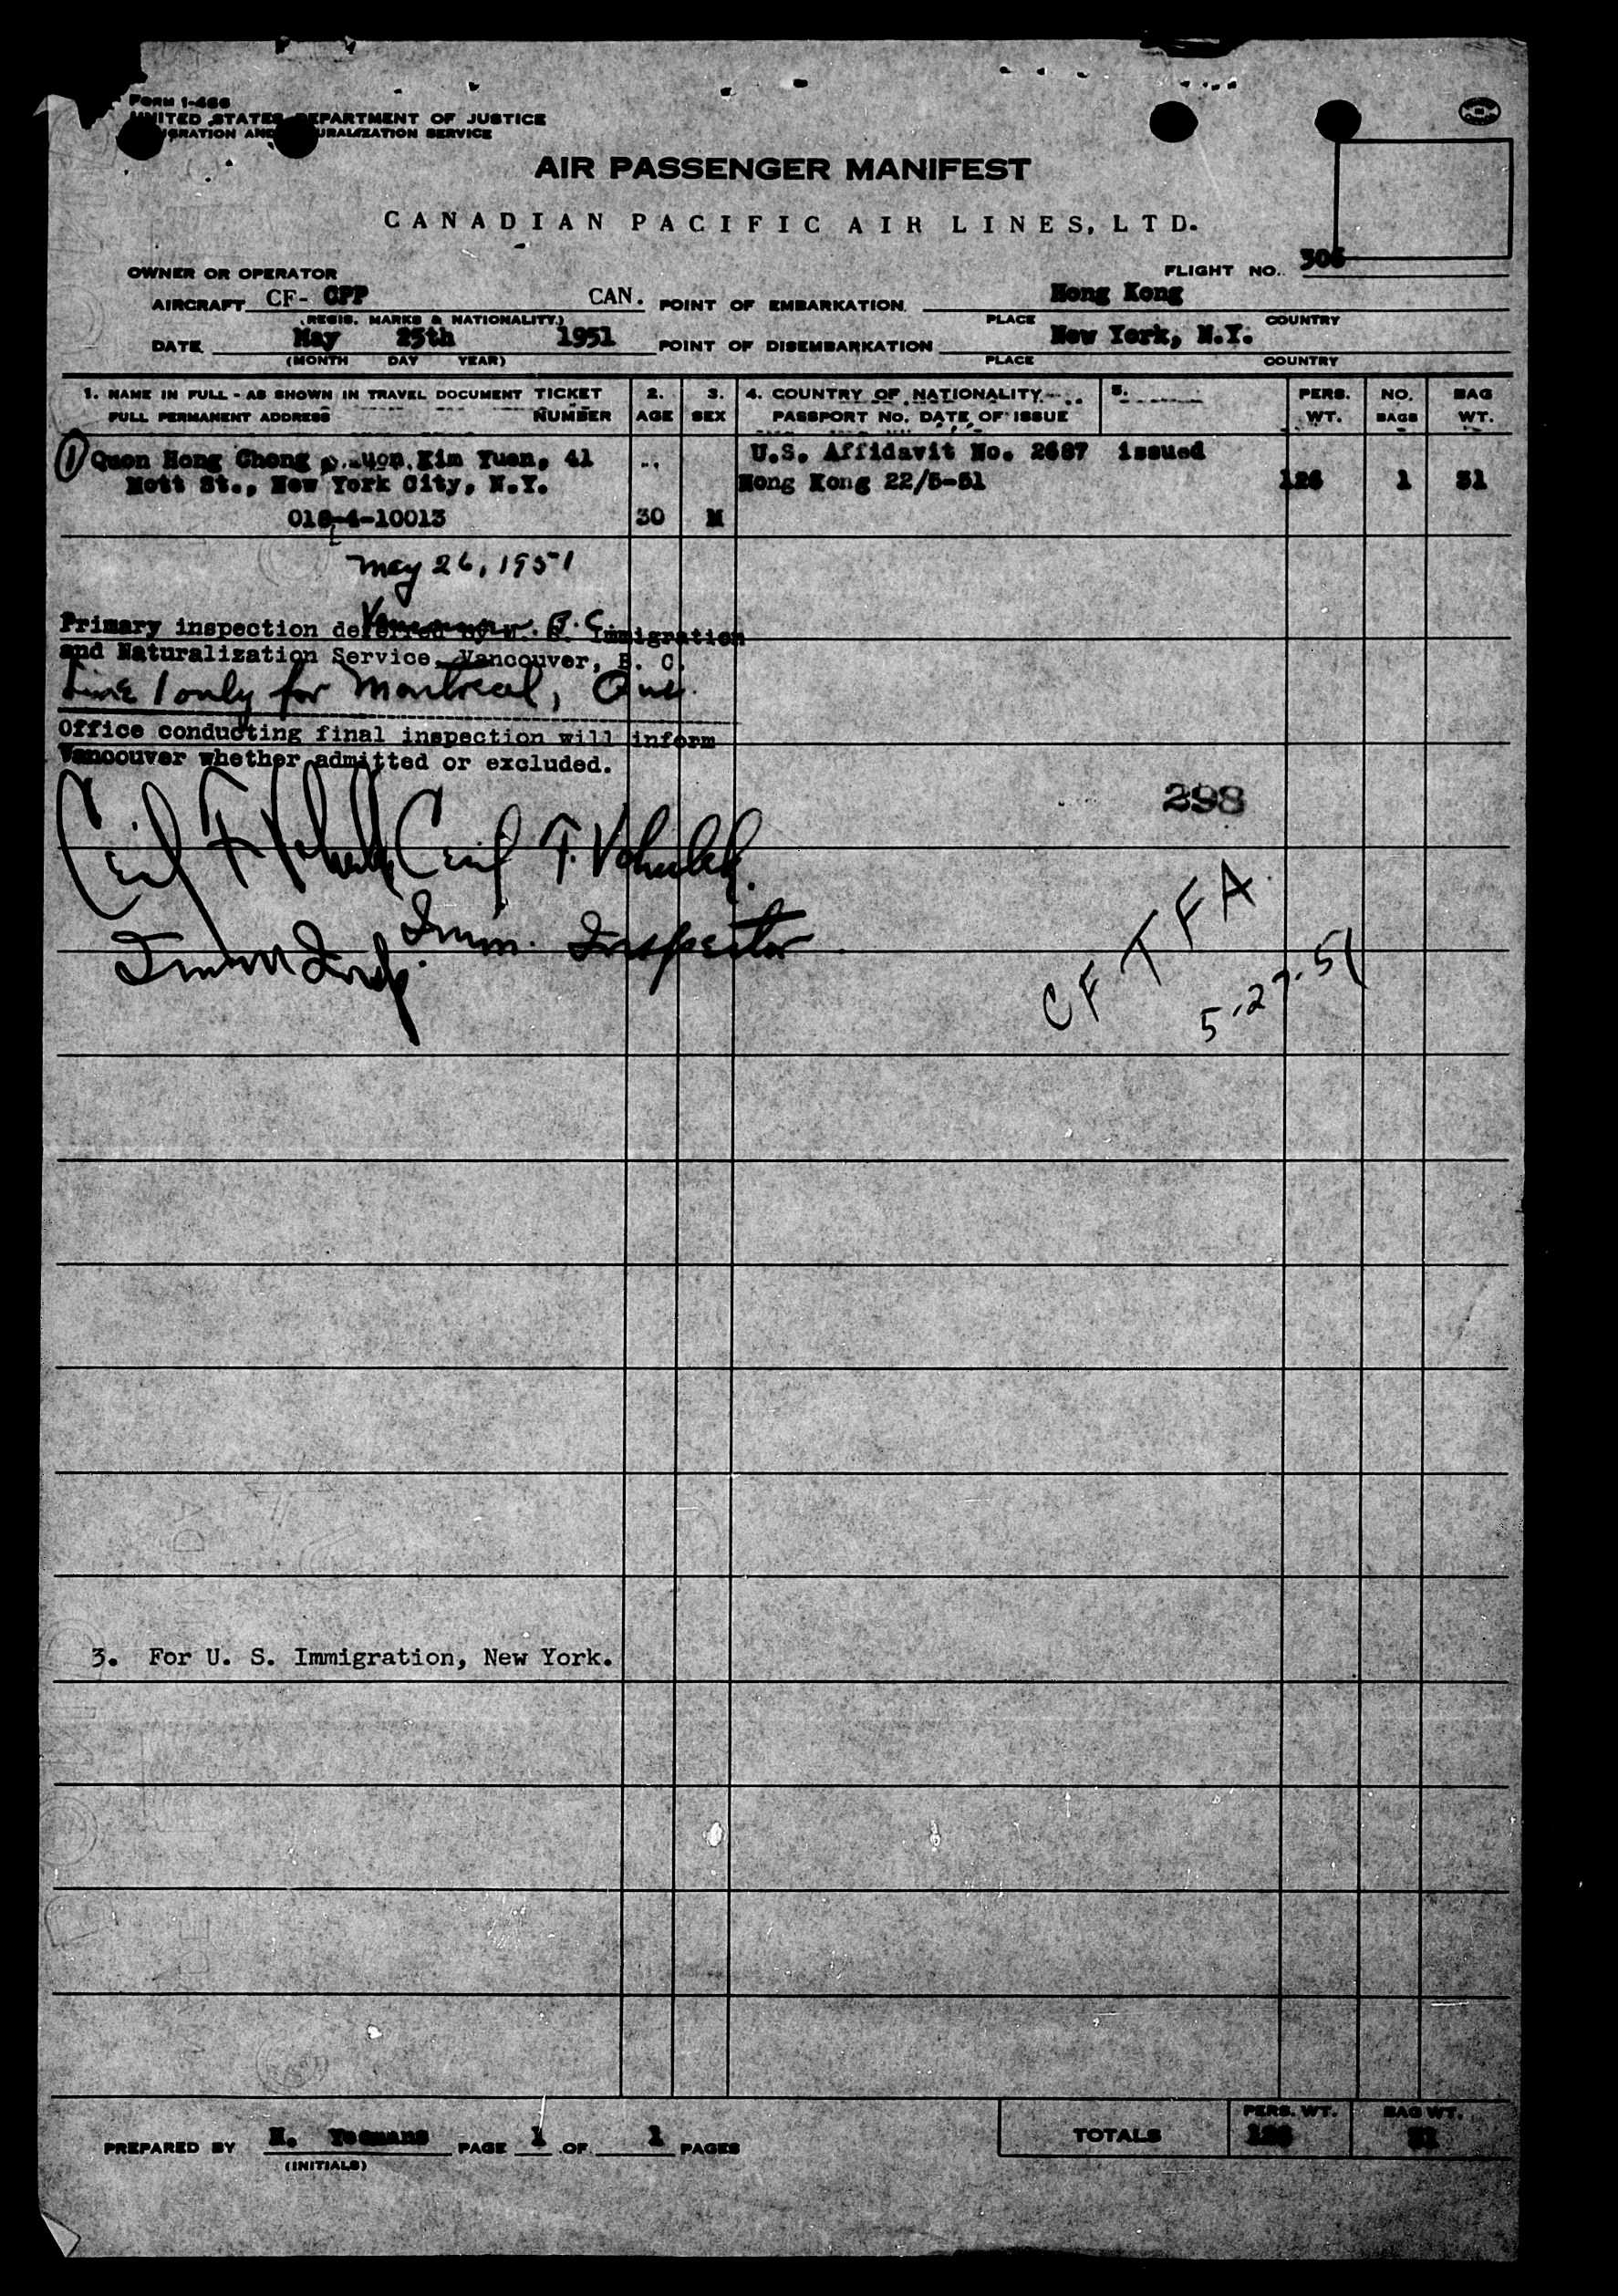 FORM I-466
UNITED STATES DEPARTMENT OF JUSTICE
IGRATION AND URALIZATION SERVICE
AIR PASSENGER MANIFEST
CANADIAN PACIFIC AIR LINES, LTD.
OWNER OR OPERATOR
FLIGHT NO. 306
AIRCRAFT CF- CPP CAN. POINT OF EMBARKATION Hong Kong
(REGIS. MARKS & NATIONALITY) PLACE COUNTRY
DATE May 25th 1951 POINT OF DISEMBARKATION New York, N.Y.
(MONTH DAY YEAR) PLACE COUNTRY
1. NAME IN FULL - AS SHOWN IN TRAVEL DOCUMENT TICKET 2. 3. 4. COUNTRY OF NATIONALITY 5. PERS. NO. BAG
FULL PERMANENT ADDRESS NUMBER AGE SEX PASSPORT NO. DATE OF ISSUE WT. BAGS WT.
1 Quon Hong Chong Kim Yuen, 41 U.S. Affidavit No. 2687 issued
Mott St., New York City, N.Y. Hong Kong 22/5-51 126 1 31
018-4-10013 30 M
May 26, 1951
Vancouver B.C.
Primary inspection deferred by U. S. Immigration
and Naturalization Service, Vancouver, B. C.
Line 1 only for Montreal, Que.
Office conducting final inspection will inform
Vancouver whether admitted or excluded.
298
Cecil F. Cecil F.
Imm Insp. Imm. Inspector
CF TFA
5-27-51
3. For U. S. Immigration, New York.
PERS. WT. BAG WT.
PREPARED BY H. Yeomans PAGE 1 OF 1 PAGES TOTALS 126 31
(INITIALS)